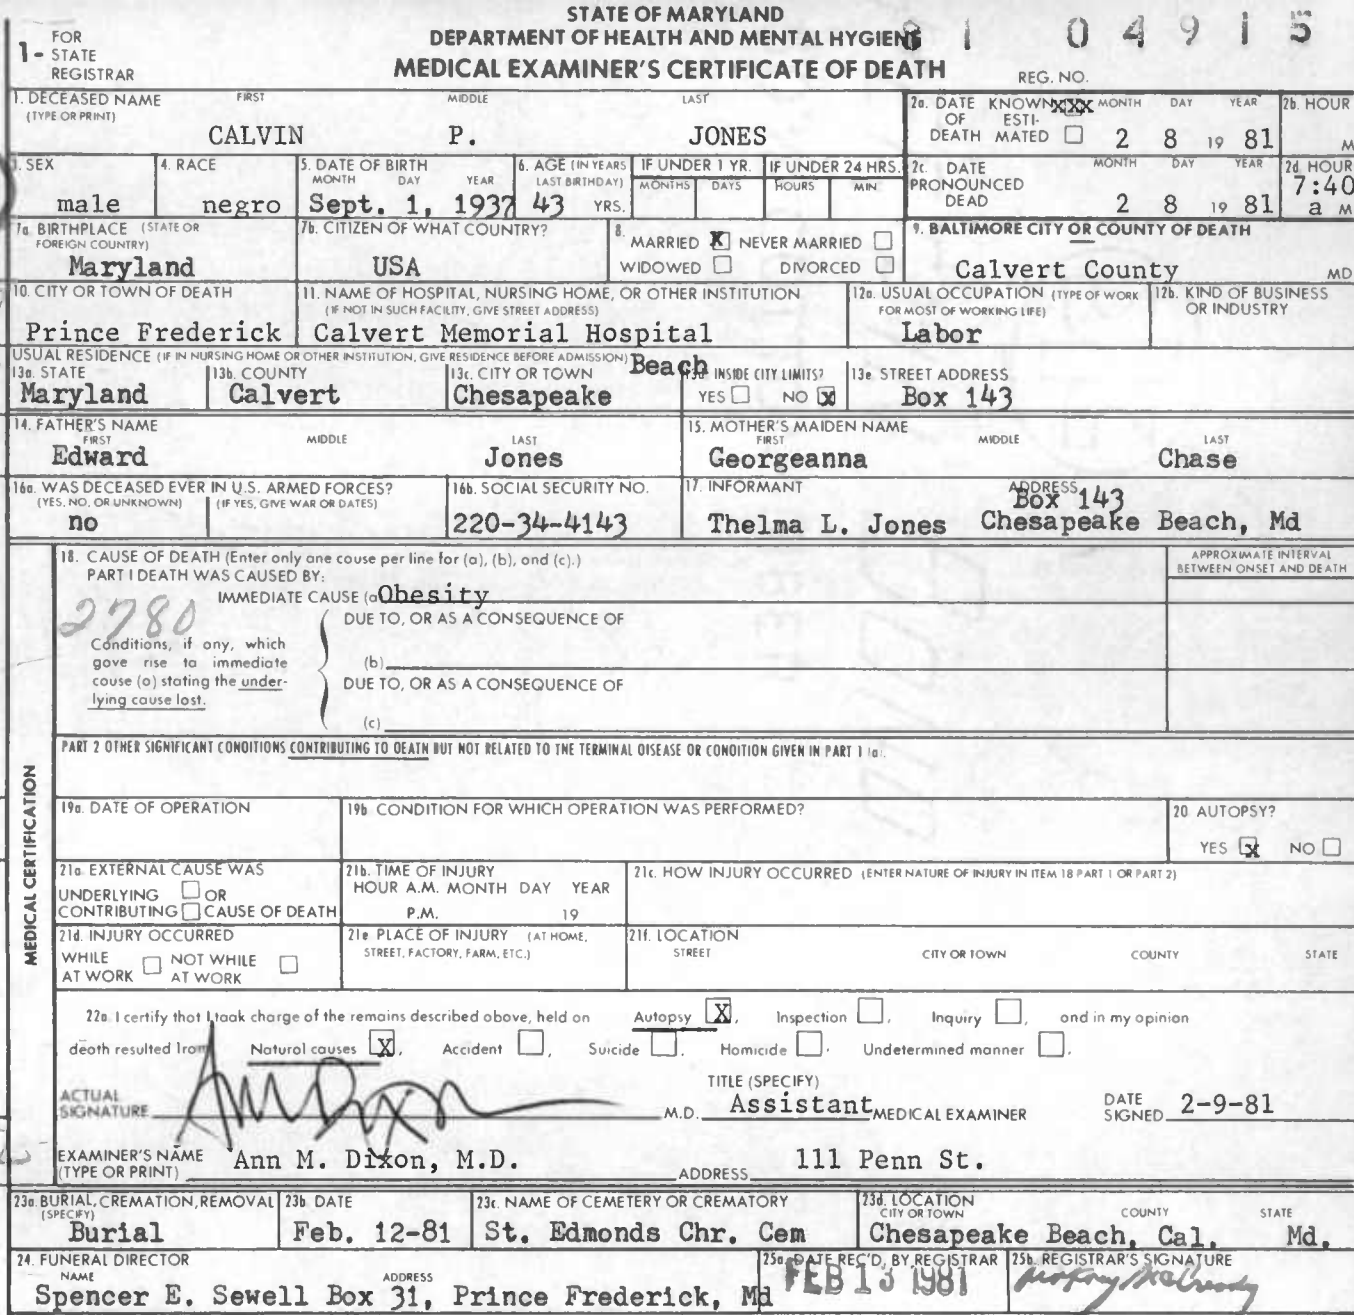 STATE OF MARYLAND
DEPARTMENT OF HEALTH AND MENTAL HYGIENE
MEDICAL EXAMINER'S CERTIFICATE OF DEATH
1- FOR STATE REGISTRAR
81 04915
REG. NO.
1. DECEASED NAME (TYPE OR PRINT) FIRST MIDDLE LAST
CALVIN P. JONES
2a. DATE OF DEATH KNOWN XXX ESTIMATED MONTH DAY YEAR
2 8 19 81
2b. HOUR
M
3. SEX
male
4. RACE
negro
5. DATE OF BIRTH MONTH DAY YEAR
Sept. 1, 1937
6. AGE (IN YEARS LAST BIRTHDAY)
43 YRS.
IF UNDER 1 YR. MONTHS DAYS
IF UNDER 24 HRS. HOURS MIN
2c. DATE PRONOUNCED DEAD MONTH DAY YEAR
2 8 19 81
2d HOUR
7:40 a M
7a. BIRTHPLACE (STATE OR FOREIGN COUNTRY)
Maryland
7b. CITIZEN OF WHAT COUNTRY?
USA
8.
MARRIED X NEVER MARRIED
WIDOWED DIVORCED
9. BALTIMORE CITY OR COUNTY OF DEATH
Calvert County MD
10. CITY OR TOWN OF DEATH
Prince Frederick
11. NAME OF HOSPITAL, NURSING HOME, OR OTHER INSTITUTION
(IF NOT IN SUCH FACILITY, GIVE STREET ADDRESS)
Calvert Memorial Hospital
12a. USUAL OCCUPATION (TYPE OF WORK FOR MOST OF WORKING LIFE)
Labor
12b. KIND OF BUSINESS OR INDUSTRY
USUAL RESIDENCE (IF IN NURSING HOME OR OTHER INSTITUTION, GIVE RESIDENCE BEFORE ADMISSION)
13a. STATE
Maryland
13b. COUNTY
Calvert
13c. CITY OR TOWN
Chesapeake Beach
INSIDE CITY LIMITS?
YES NO X
13e. STREET ADDRESS
Box 143
14. FATHER'S NAME FIRST MIDDLE LAST
Edward Jones
15. MOTHER'S MAIDEN NAME FIRST MIDDLE LAST
Georgeanna Chase
16a. WAS DECEASED EVER IN U.S. ARMED FORCES?
(YES, NO, OR UNKNOWN) (IF YES, GIVE WAR OR DATES)
no
16b. SOCIAL SECURITY NO.
220-34-4143
17. INFORMANT ADDRESS
Thelma L. Jones Box 143 Chesapeake Beach, Md
MEDICAL CERTIFICATION
18. CAUSE OF DEATH (Enter only one cause per line for (a), (b), and (c).)
APPROXIMATE INTERVAL BETWEEN ONSET AND DEATH
PART I DEATH WAS CAUSED BY:
IMMEDIATE CAUSE (a Obesity
2780
DUE TO, OR AS A CONSEQUENCE OF
Conditions, if any, which
gave rise to immediate
cause (a) stating the under-
lying cause last.
(b)
DUE TO, OR AS A CONSEQUENCE OF
(c)
PART 2 OTHER SIGNIFICANT CONDITIONS CONTRIBUTING TO DEATH BUT NOT RELATED TO THE TERMINAL DISEASE OR CONDITION GIVEN IN PART 1 (a).
19a. DATE OF OPERATION
19b CONDITION FOR WHICH OPERATION WAS PERFORMED?
20 AUTOPSY?
YES X NO
21a EXTERNAL CAUSE WAS
UNDERLYING OR
CONTRIBUTING CAUSE OF DEATH
21b. TIME OF INJURY
HOUR A.M. MONTH DAY YEAR
P.M. 19
21c. HOW INJURY OCCURRED (ENTER NATURE OF INJURY IN ITEM 18 PART 1 OR PART 2)
21d. INJURY OCCURRED
WHILE AT WORK NOT WHILE AT WORK
21e PLACE OF INJURY (AT HOME, STREET, FACTORY, FARM, ETC.)
21f. LOCATION
STREET CITY OR TOWN COUNTY STATE
22a. I certify that I took charge of the remains described above, held on Autopsy X, Inspection , Inquiry , and in my opinion
death resulted from Natural causes X, Accident , Suicide , Homicide . Undetermined manner .
ACTUAL SIGNATURE Ann Dixon M.D.
TITLE (SPECIFY)
Assistant MEDICAL EXAMINER
DATE SIGNED 2-9-81
EXAMINER'S NAME (TYPE OR PRINT) Ann M. Dixon, M.D.
ADDRESS 111 Penn St.
23a. BURIAL, CREMATION, REMOVAL (SPECIFY)
Burial
23b. DATE
Feb. 12-81
23c. NAME OF CEMETERY OR CREMATORY
St. Edmonds Chr. Cem
23d. LOCATION CITY OR TOWN COUNTY STATE
Chesapeake Beach, Cal. Md.
24. FUNERAL DIRECTOR
NAME ADDRESS
Spencer E. Sewell Box 31, Prince Frederick, Md
25a. DATE REC'D. BY REGISTRAR
FEB 13 1981
25b. REGISTRAR'S SIGNATURE